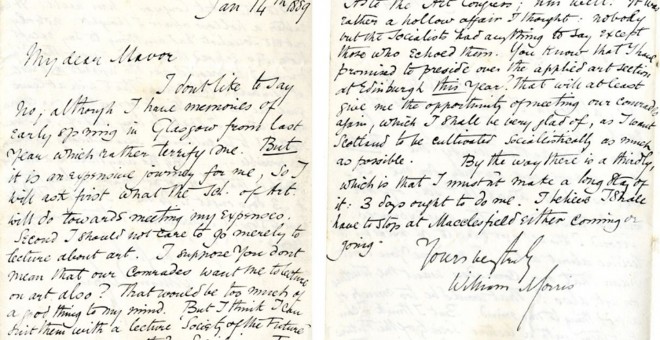 Jan 14th 1889
My dear Mavor
I don't like to say
No; although I have memories of
early spring in Glasgow from last
Year which rather terrify me. But
it is an expensive journey for me, so I
will ask first what the Soc. of Art
will do towards meeting my expences.
Second I should not care to go merely to
lecture about art. I suppose you don't
mean that our Comrades want me to lecture
on art also? That would be too much of
a good thing to my mind. But I think I can
suit them with a lecture Society of the Future
As to the Art Congress; h'm well. It was
rather a hollow affair I thought: nobody
but the Socialists had anything to say except
those who echoed them. You know that I have
promised to preside over the applied art section
at Edinburgh this Year: that will at least
give me the opportunity of meeting our Comrades
again, which I shall be very glad of, as I want
Scotland to be cultivated Socialistically as much
as possible. By the way there is a thirdly,
which is that I mustn't make a long stay of
it. 3 days ought to do me. I believe I shall
have to stop at Macclesfield either coming or
going.
Yours very truly
William Morris